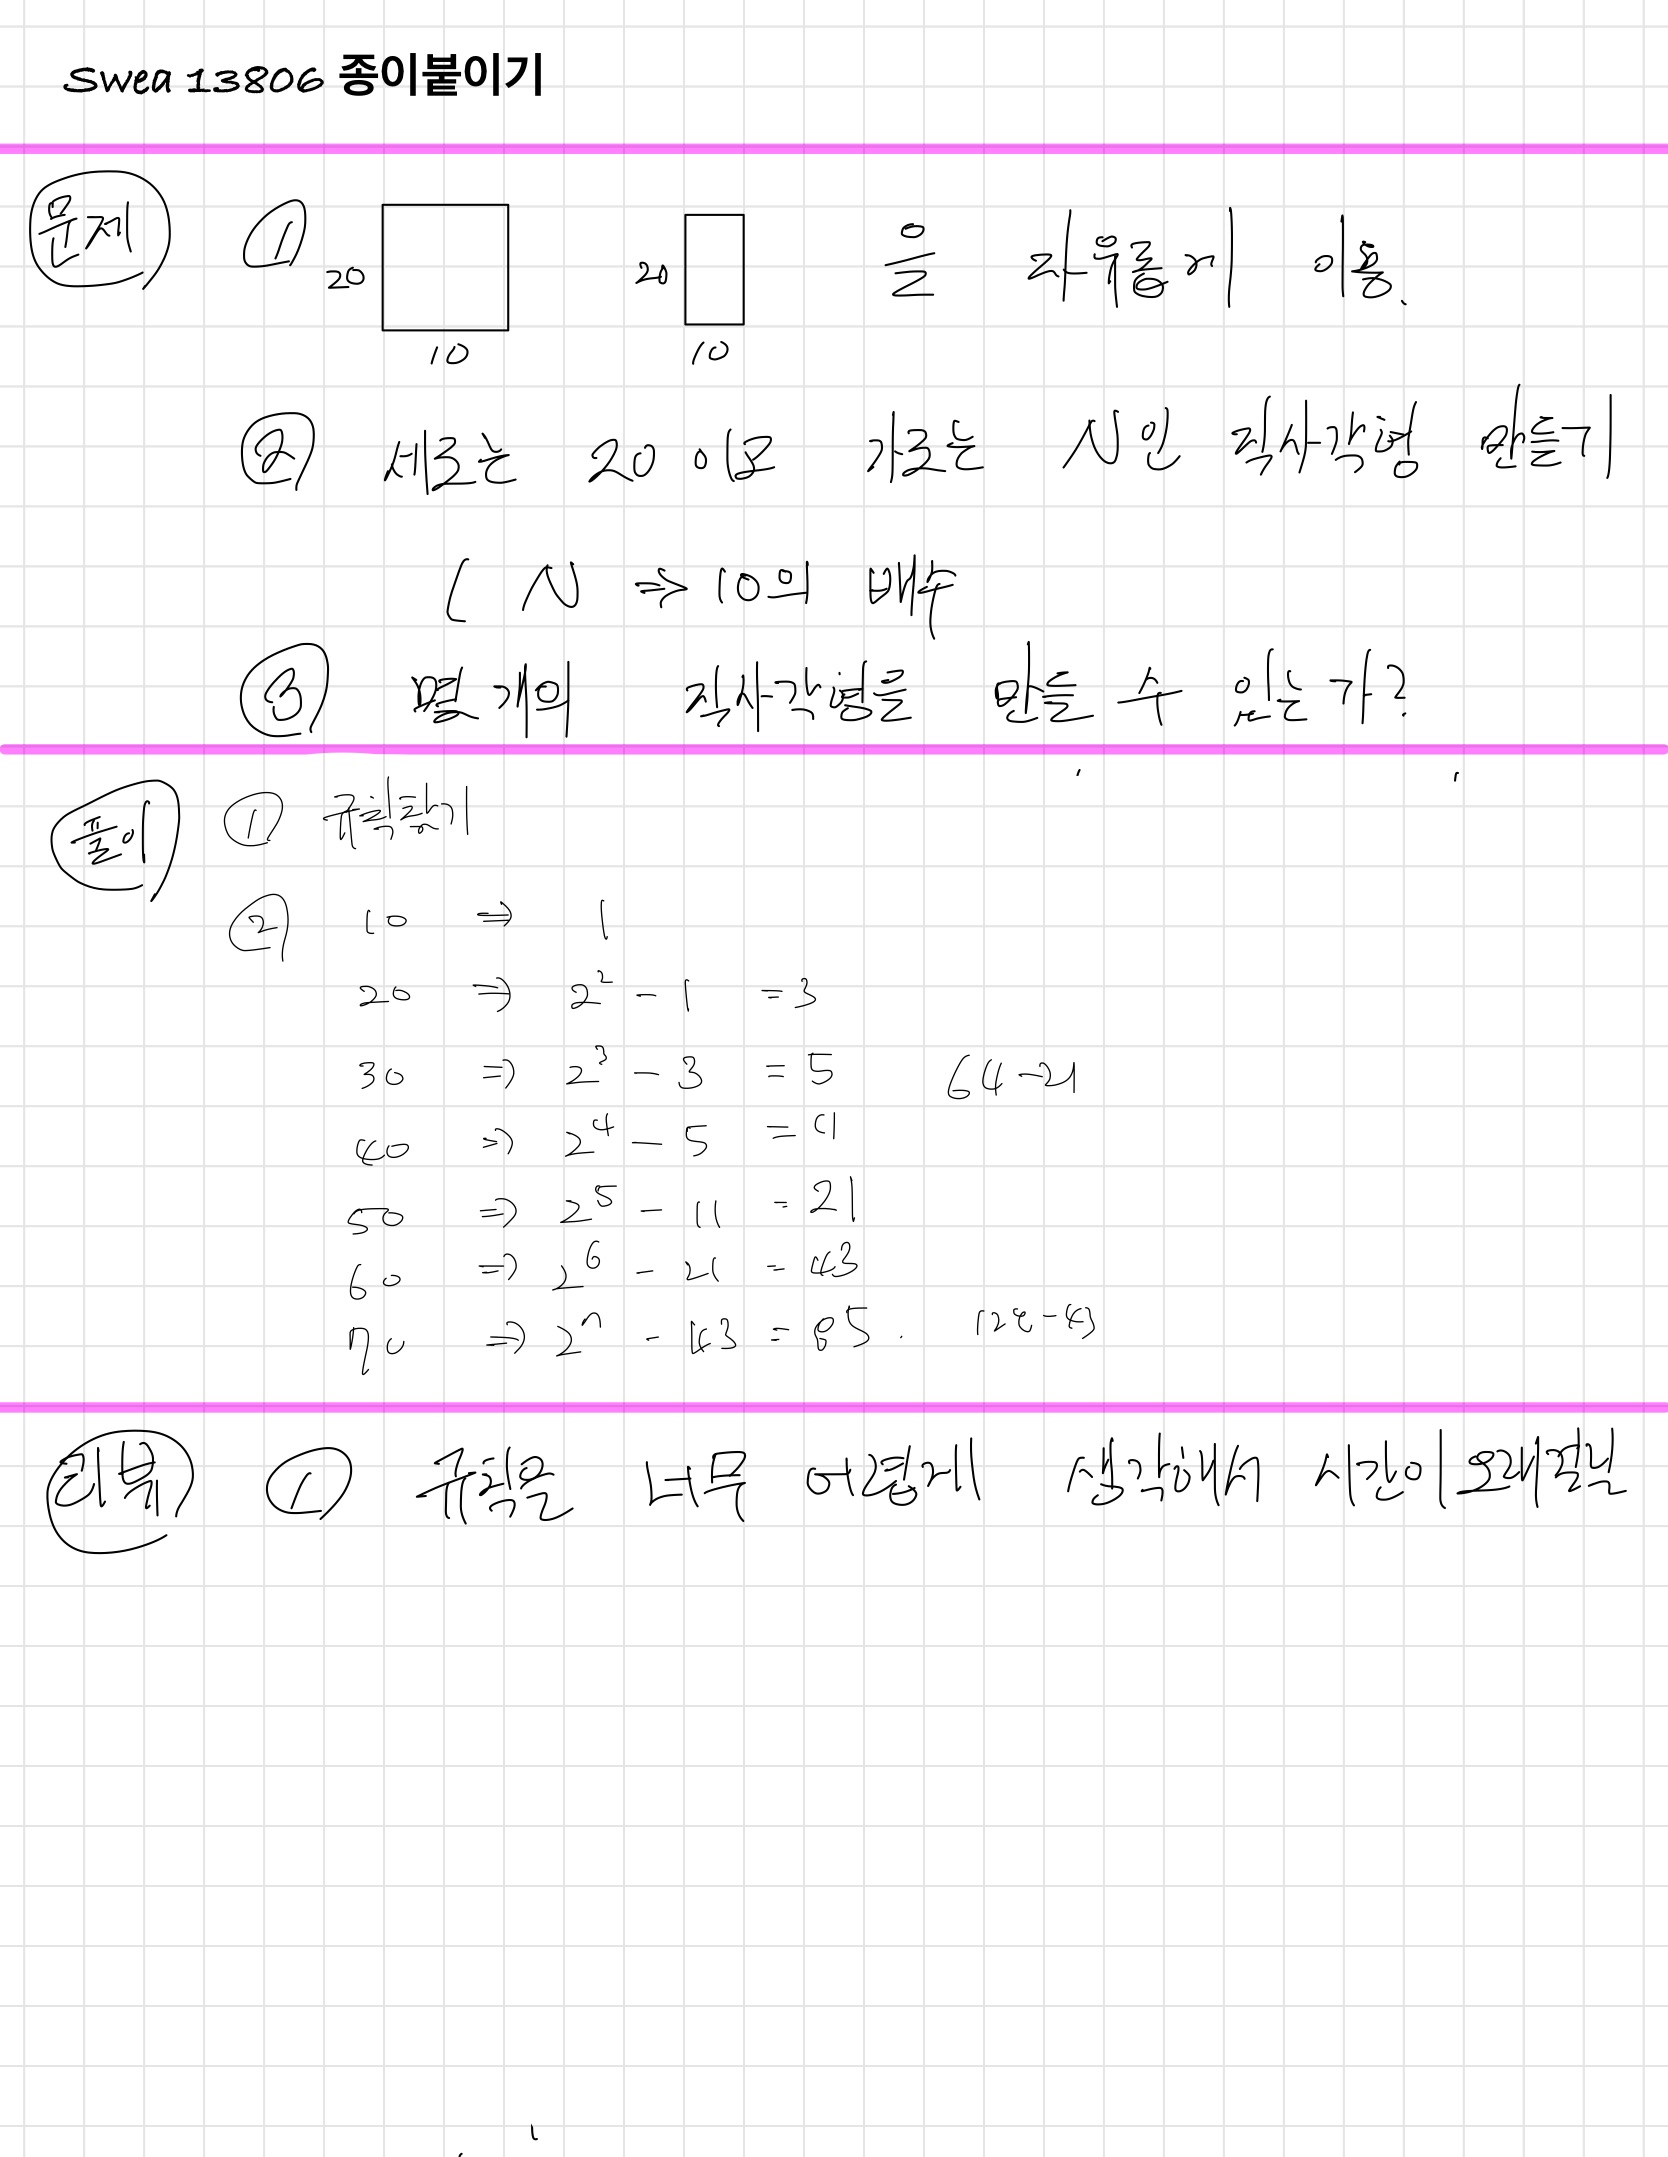 Swea 13806 종이붙이기
문제 ① 20 10 20 10 을 자유롭게 이용.
② 세로는 20 이고 가로는 N인 직사각형 만들기
( N ⇒ 10의 배수
③ 몇 개의 직사각형을 만들 수 있는가?
풀이 ① 규칙찾기
② 10 ⇒ 1
20 ⇒ 2² - 1 = 3
30 ⇒ 2³ - 3 = 5 64-21
40 ⇒ 2⁴ - 5 = 11
50 ⇒ 2⁵ - 11 = 21
60 ⇒ 2⁶ - 21 = 43
70 ⇒ 2⁷ - 43 = 85. 128-43
리뷰 ① 규칙을 너무 어렵게 생각해서 시간이 오래걸림